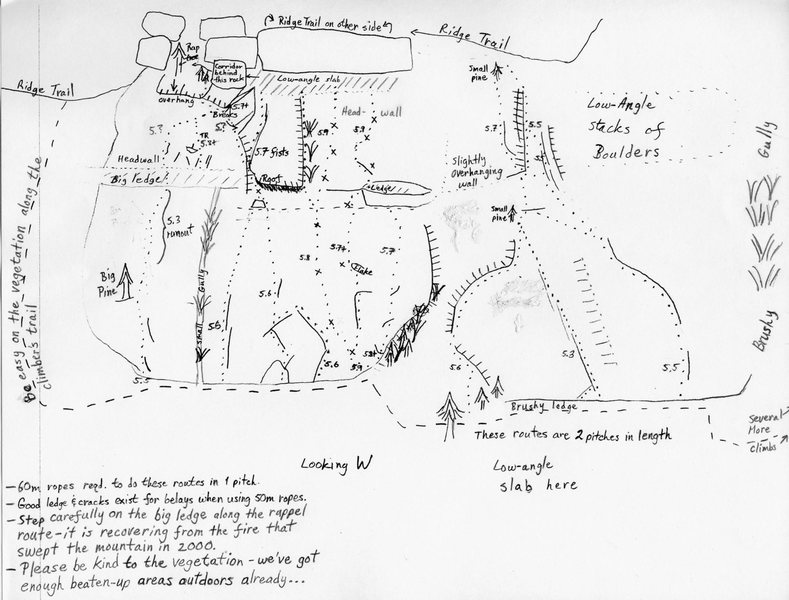 Ridge Trail on other side
Ridge Trail
Rap
Corridor
behind
this rock
Low-angle slab
Small
pine
Ridge Trail
overhang
Breaks
5.7+
5.3
TR
Head-
wall
5.9
5.9
5.7
5.5
Low-Angle
Stacks of
Boulders
Gully
Headwall
5.7 fists
Slightly
Overhanging
wall
Big ledge
Root
Ledge
5.3
runout
Small
pine
Big
Pine
Small Gully
5.8
5.7+
5.7
Flake
5.6
5.6
5.6
5.9
5.5
5.6
5.3
5.5
Brushy
Be easy on the vegetation along the
climber's trail
Brushy ledge
These routes are 2 pitches in length
Several
More
climbs
Looking W
Low-angle
slab here
- 60m ropes reqd. to do these routes in 1 pitch.
- Good ledge & cracks exist for belays when using 50m ropes.
- Step carefully on the big ledge along the rappel
route - it is recovering from the fire that
swept the mountain in 2000.
- Please be kind to the vegetation - we've got
enough beaten-up areas outdoors already...